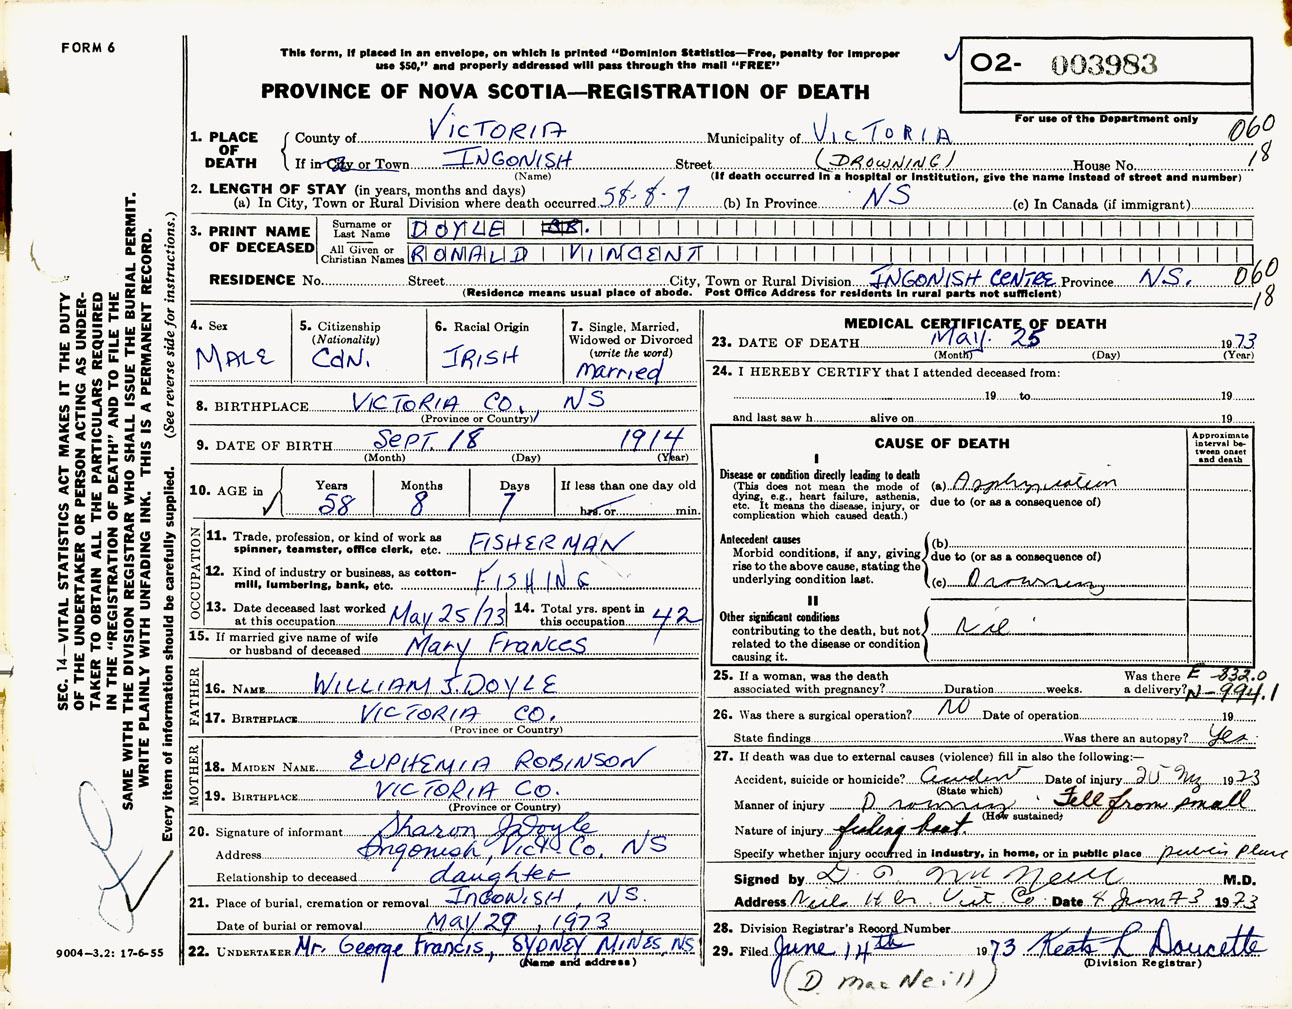 FORM 6
This form, if placed in an envelope, on which is printed "Dominion Statistics—Free, penalty for improper
use $50," and properly addressed will pass through the mail "FREE"
O2- 003983
For use of the Department only
PROVINCE OF NOVA SCOTIA—REGISTRATION OF DEATH
060
18
1. PLACE OF DEATH
County of VICTORIA Municipality of VICTORIA
If in City or Town INGONISH Street (DROWNING) House No.
(Name) (If death occurred in a hospital or institution, give the name instead of street and number)
2. LENGTH OF STAY (in years, months and days)
(a) In City, Town or Rural Division where death occurred 58-8-7 (b) In Province NS (c) In Canada (if immigrant)
3. PRINT NAME OF DECEASED
Surname or Last Name DOYLE
All Given or Christian Names RONALD VINCENT
RESIDENCE No. Street City, Town or Rural Division INGONISH CENTRE Province NS.
060
18
(Residence means usual place of abode. Post Office Address for residents in rural parts not sufficient)
4. Sex
MALE
5. Citizenship
(Nationality)
CDN.
6. Racial Origin
IRISH
7. Single, Married,
Widowed or Divorced
(write the word)
Married
8. BIRTHPLACE VICTORIA CO., NS
(Province or Country)
9. DATE OF BIRTH SEPT. 18 1914
(Month) (Day) (Year)
10. AGE in
Years Months Days If less than one day old
58 8 7 hrs. or min.
OCCUPATION
11. Trade, profession, or kind of work as
spinner, teamster, office clerk, etc. FISHERMAN
12. Kind of industry or business, as cotton-
mill, lumbering, bank, etc. FISHING
13. Date deceased last worked
at this occupation May 25/73
14. Total yrs. spent in
this occupation 42
15. If married give name of wife
or husband of deceased Mary Frances
FATHER
16. NAME WILLIAM J. DOYLE
17. BIRTHPLACE VICTORIA CO.
(Province or Country)
MOTHER
18. MAIDEN NAME EUPHEMIA ROBINSON
19. BIRTHPLACE VICTORIA CO.
(Province or Country)
20. Signature of informant Sharon J Doyle
Address Ingonish, Vict. Co. NS
Relationship to deceased daughter
21. Place of burial, cremation or removal INGONISH, NS.
Date of burial or removal MAY 29, 1973
22. UNDERTAKER Mr. George Francis, SYDNEY MINES, NS
(Name and address)
MEDICAL CERTIFICATE OF DEATH
23. DATE OF DEATH May 25 1973
(Month) (Day) (Year)
24. I HEREBY CERTIFY that I attended deceased from:
19 to 19
and last saw h alive on 19
CAUSE OF DEATH
Approximate
interval be-
tween onset
and death
I
Disease or condition directly leading to death
(This does not mean the mode of
dying, e.g., heart failure, asthenia,
etc. It means the disease, injury, or
complication which caused death.)
(a) Asphyxiation
due to (or as a consequence of)
Antecedent causes
Morbid conditions, if any, giving
rise to the above cause, stating the
underlying condition last.
(b)
due to (or as a consequence of)
(c) Drowning
II
Other significant conditions
contributing to the death, but not
related to the disease or condition
causing it.
Nil
25. If a woman, was the death
associated with pregnancy? Duration weeks.
Was there
a delivery?
E-832.0
N-994.1
26. Was there a surgical operation? NO Date of operation 19
State findings Was there an autopsy? Yes
27. If death was due to external causes (violence) fill in also the following:—
Accident, suicide or homicide? Accident Date of injury 25 My 1973
(State which)
Manner of injury Drowning Fell from small
(How sustained)
Nature of injury fishing boat.
Specify whether injury occurred in industry, in home, or in public place public place
Signed by McNeill M.D.
Address Neils Hbr Vict Co. Date 4 June 73 1973
28. Division Registrar's Record Number
29. Filed June 14th 1973 Keats L Doucette
(Division Registrar)
(D. MacNeill)
SEC. 14—VITAL STATISTICS ACT MAKES IT THE DUTY
OF THE UNDERTAKER OR PERSON ACTING AS UNDER-
TAKER TO OBTAIN ALL THE PARTICULARS REQUIRED
IN THE "REGISTRATION OF DEATH" AND TO FILE THE
SAME WITH THE DIVISION REGISTRAR WHO SHALL ISSUE THE BURIAL PERMIT.
WRITE PLAINLY WITH UNFADING INK. THIS IS A PERMANENT RECORD.
Every item of information should be carefully supplied. (See reverse side for instructions.)
9004—3.2: 17-6-55